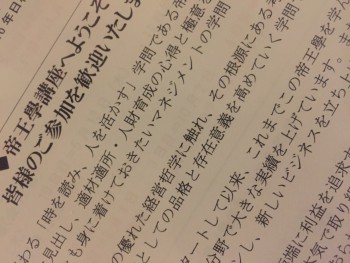 年日
◆帝王學講座へようこそ
皆様のご参加を歓迎いたしま
わる「時を読み、人を活かす」学問である帝
見出し、適材適所・人財育成の心得と極意を
も身に着けておきたいマネジメントの学問
の優れた経営哲学に触れ、その根源にある
としての品格と存在意義を高めていく学問
タートして以来、これまでこの帝王學を学ん
分野で大きな実績を上げています。ま
し、新しいビジネスを立ち上
端に利益を追求
本気で取り組